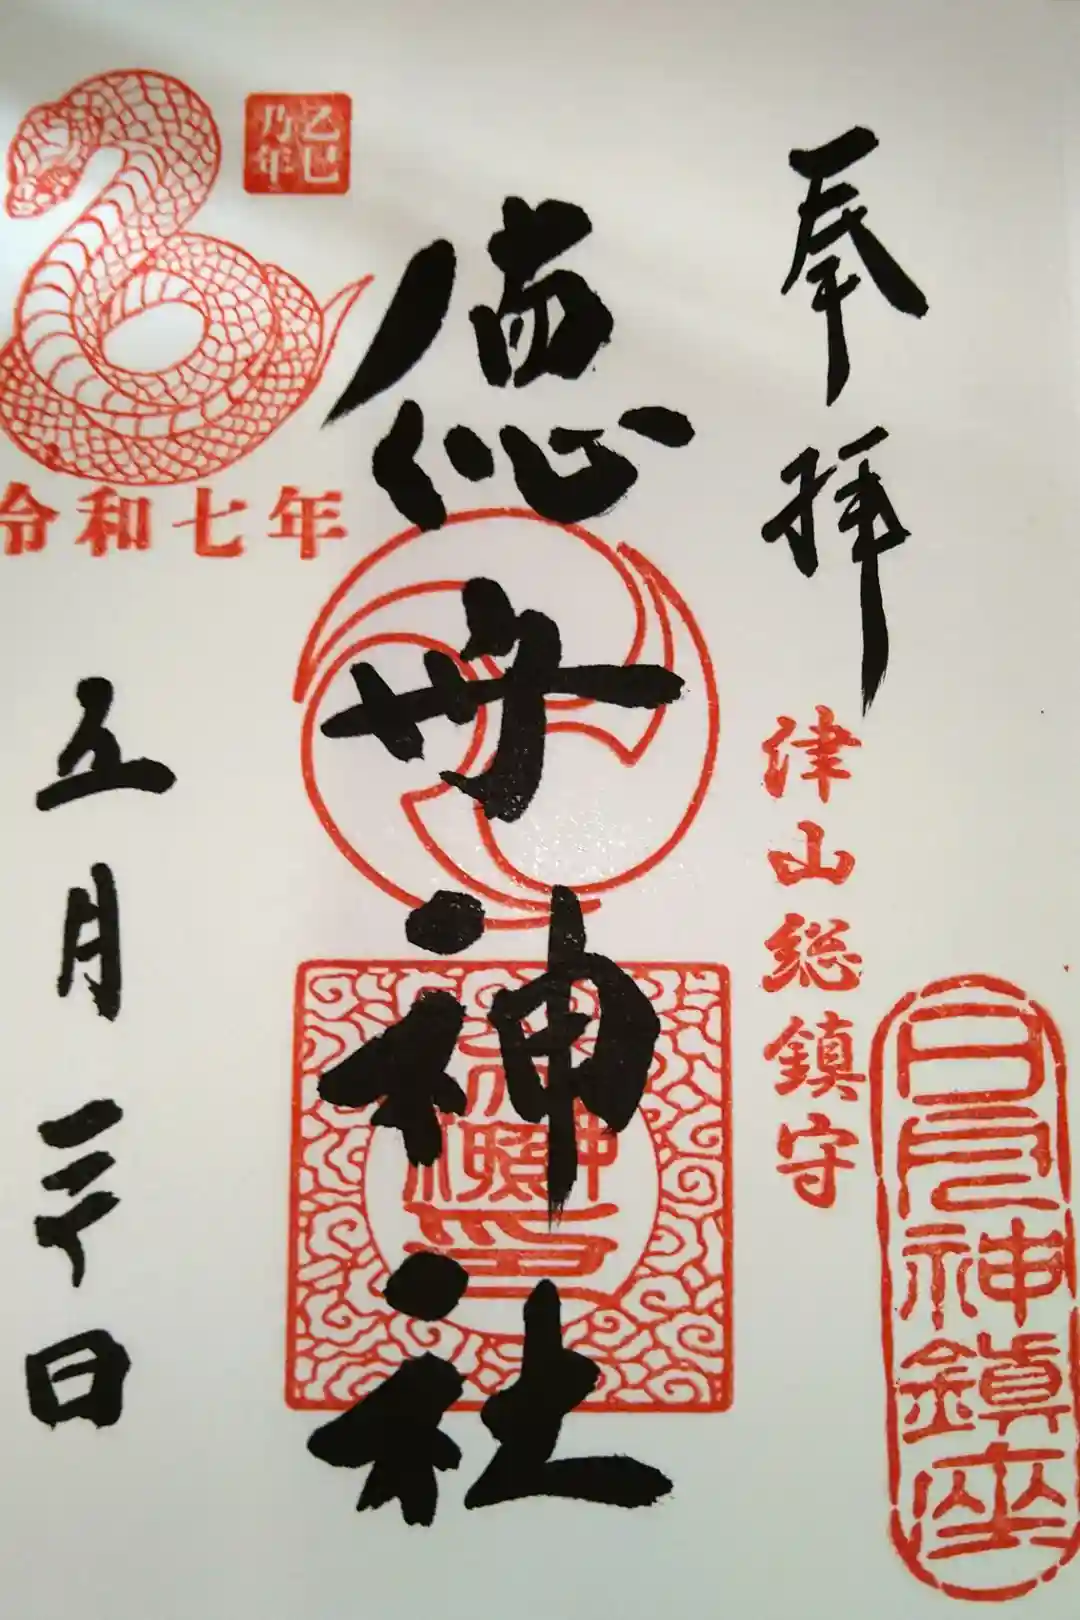 奉拝
津山総鎮守
日月神鎮座
徳守神社
乙巳
乃年
令和七年
五月三十日